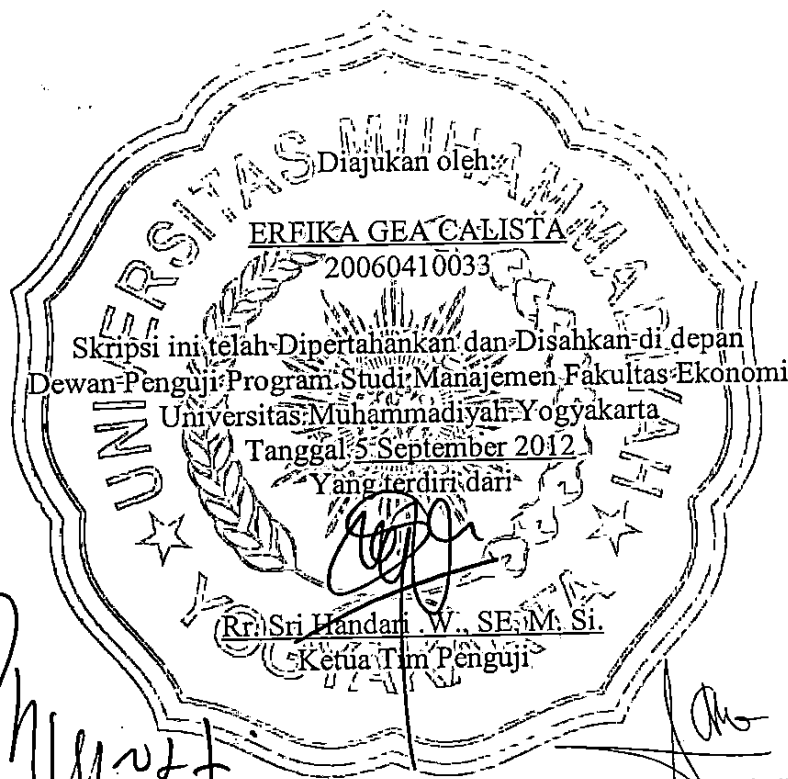 UNIVERSITAS MUHAMMADIYAH
Diajukan oleh:
ERFIKA GEA CALISTA
20060410033
Skripsi ini telah Dipertahankan dan Disahkan di depan
Dewan Penguji Program Studi Manajemen Fakultas Ekonomi
Universitas Muhammadiyah Yogyakarta
Tanggal 5 September 2012
Yang terdiri dari
Rr. Sri Handari .W., SE, M. Si.
Ketua Tim Penguji
YOGYAKARTA